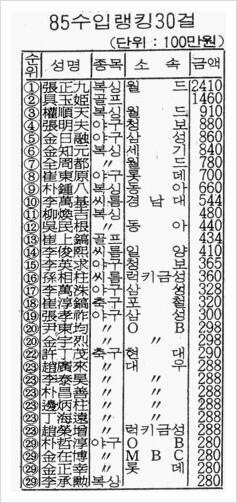 85수입랭킹30걸
(단위 : 100만원)
순위 성명 종목 소속 금액
① 張正九 복싱 월드 2410
② 具玉姬 골프 1460
③ 權順天 복싱 월드 910
④ 張明夫 야구 청보 880
⑤ 金日融 야구 삼성 860
⑥ 金知元 복싱 세기 840
⑦ 全周都 〃 월드 780
⑧ 崔東原 야구 롯데 700
⑨ 朴鍾八 복싱 동아 660
⑩ 李萬基 씨름 경남대 544
⑪ 柳煥吉 복싱 480
⑫ 吳民根 〃 동아 440
⑬ 崔上鎬 골프 434
⑭ 李俊熙 씨름 일양 410
⑮ 李英求 야구 청보 365
⑯ 孫相柱 씨름 럭키금성 360
⑰ 李萬洙 야구 삼성 328
⑱ 崔淳鎬 축구 포철 320
⑲ 張孝祚 야구 삼성 300
⑳ 尹東均 〃 O B 298
⑳ 金宇烈 〃 〃 298
㉒ 許丁茂 축구 현대 290
㉓ 趙廣來 〃 대우 288
㉓ 李泰昊 〃 〃 288
㉓ 朴昌善 〃 〃 288
㉓ 邊炳柱 〃 〃 288
㉓ 丁海遠 〃 〃 288
㉓ 趙榮增 〃 럭키금성 288
㉙ 朴哲淳 야구 O B 280
㉙ 金在博 〃 M B C 280
㉙ 金正幸 〃 롯데 280
㉙ 李承勳 복싱 280